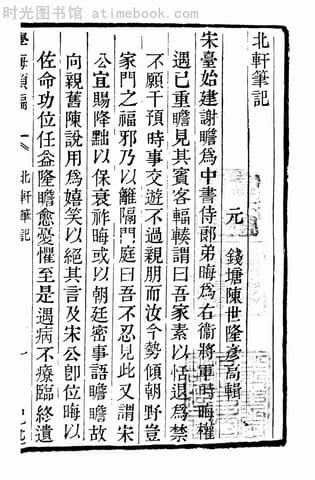 时光图书馆 - atimebook.com
北軒筆記
元 錢塘陳世隆彥高輯
宋臺始建謝瞻爲中書侍郎弟晦爲右衞將軍時晦權
遇已重瞻見其賓客輻輳謂曰吾家素以恬退爲禁
不願干預時事交遊不過親朋而汝今勢傾朝野豈
家門之福邪乃以籬隔門庭曰吾不忍見此又謂宋
公宜賜降黜以保衰祚晦或以朝廷密事語瞻瞻故
向親舊陳說用爲嬉笑以絕其言及宋公卽位晦以
佐命功位任益隆瞻愈憂懼至是遇病不療臨終遺
學海類編
北軒筆記
一